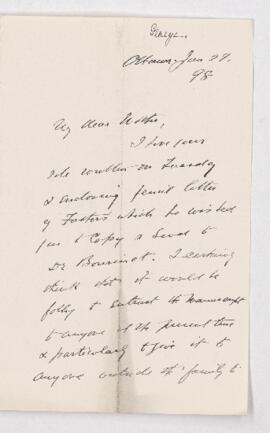 Ottawa, Jan 27.
98
My dear Mother,
I have your
note written on Tuesday
& enclosing pencil letter
of Father's which he wished
you to copy & send to
Dr Bourinot. I certainly
think that it would be
folly to entrust the Manuscript
to anyone at the present time
& particularly to give it to
anyone outside the family to